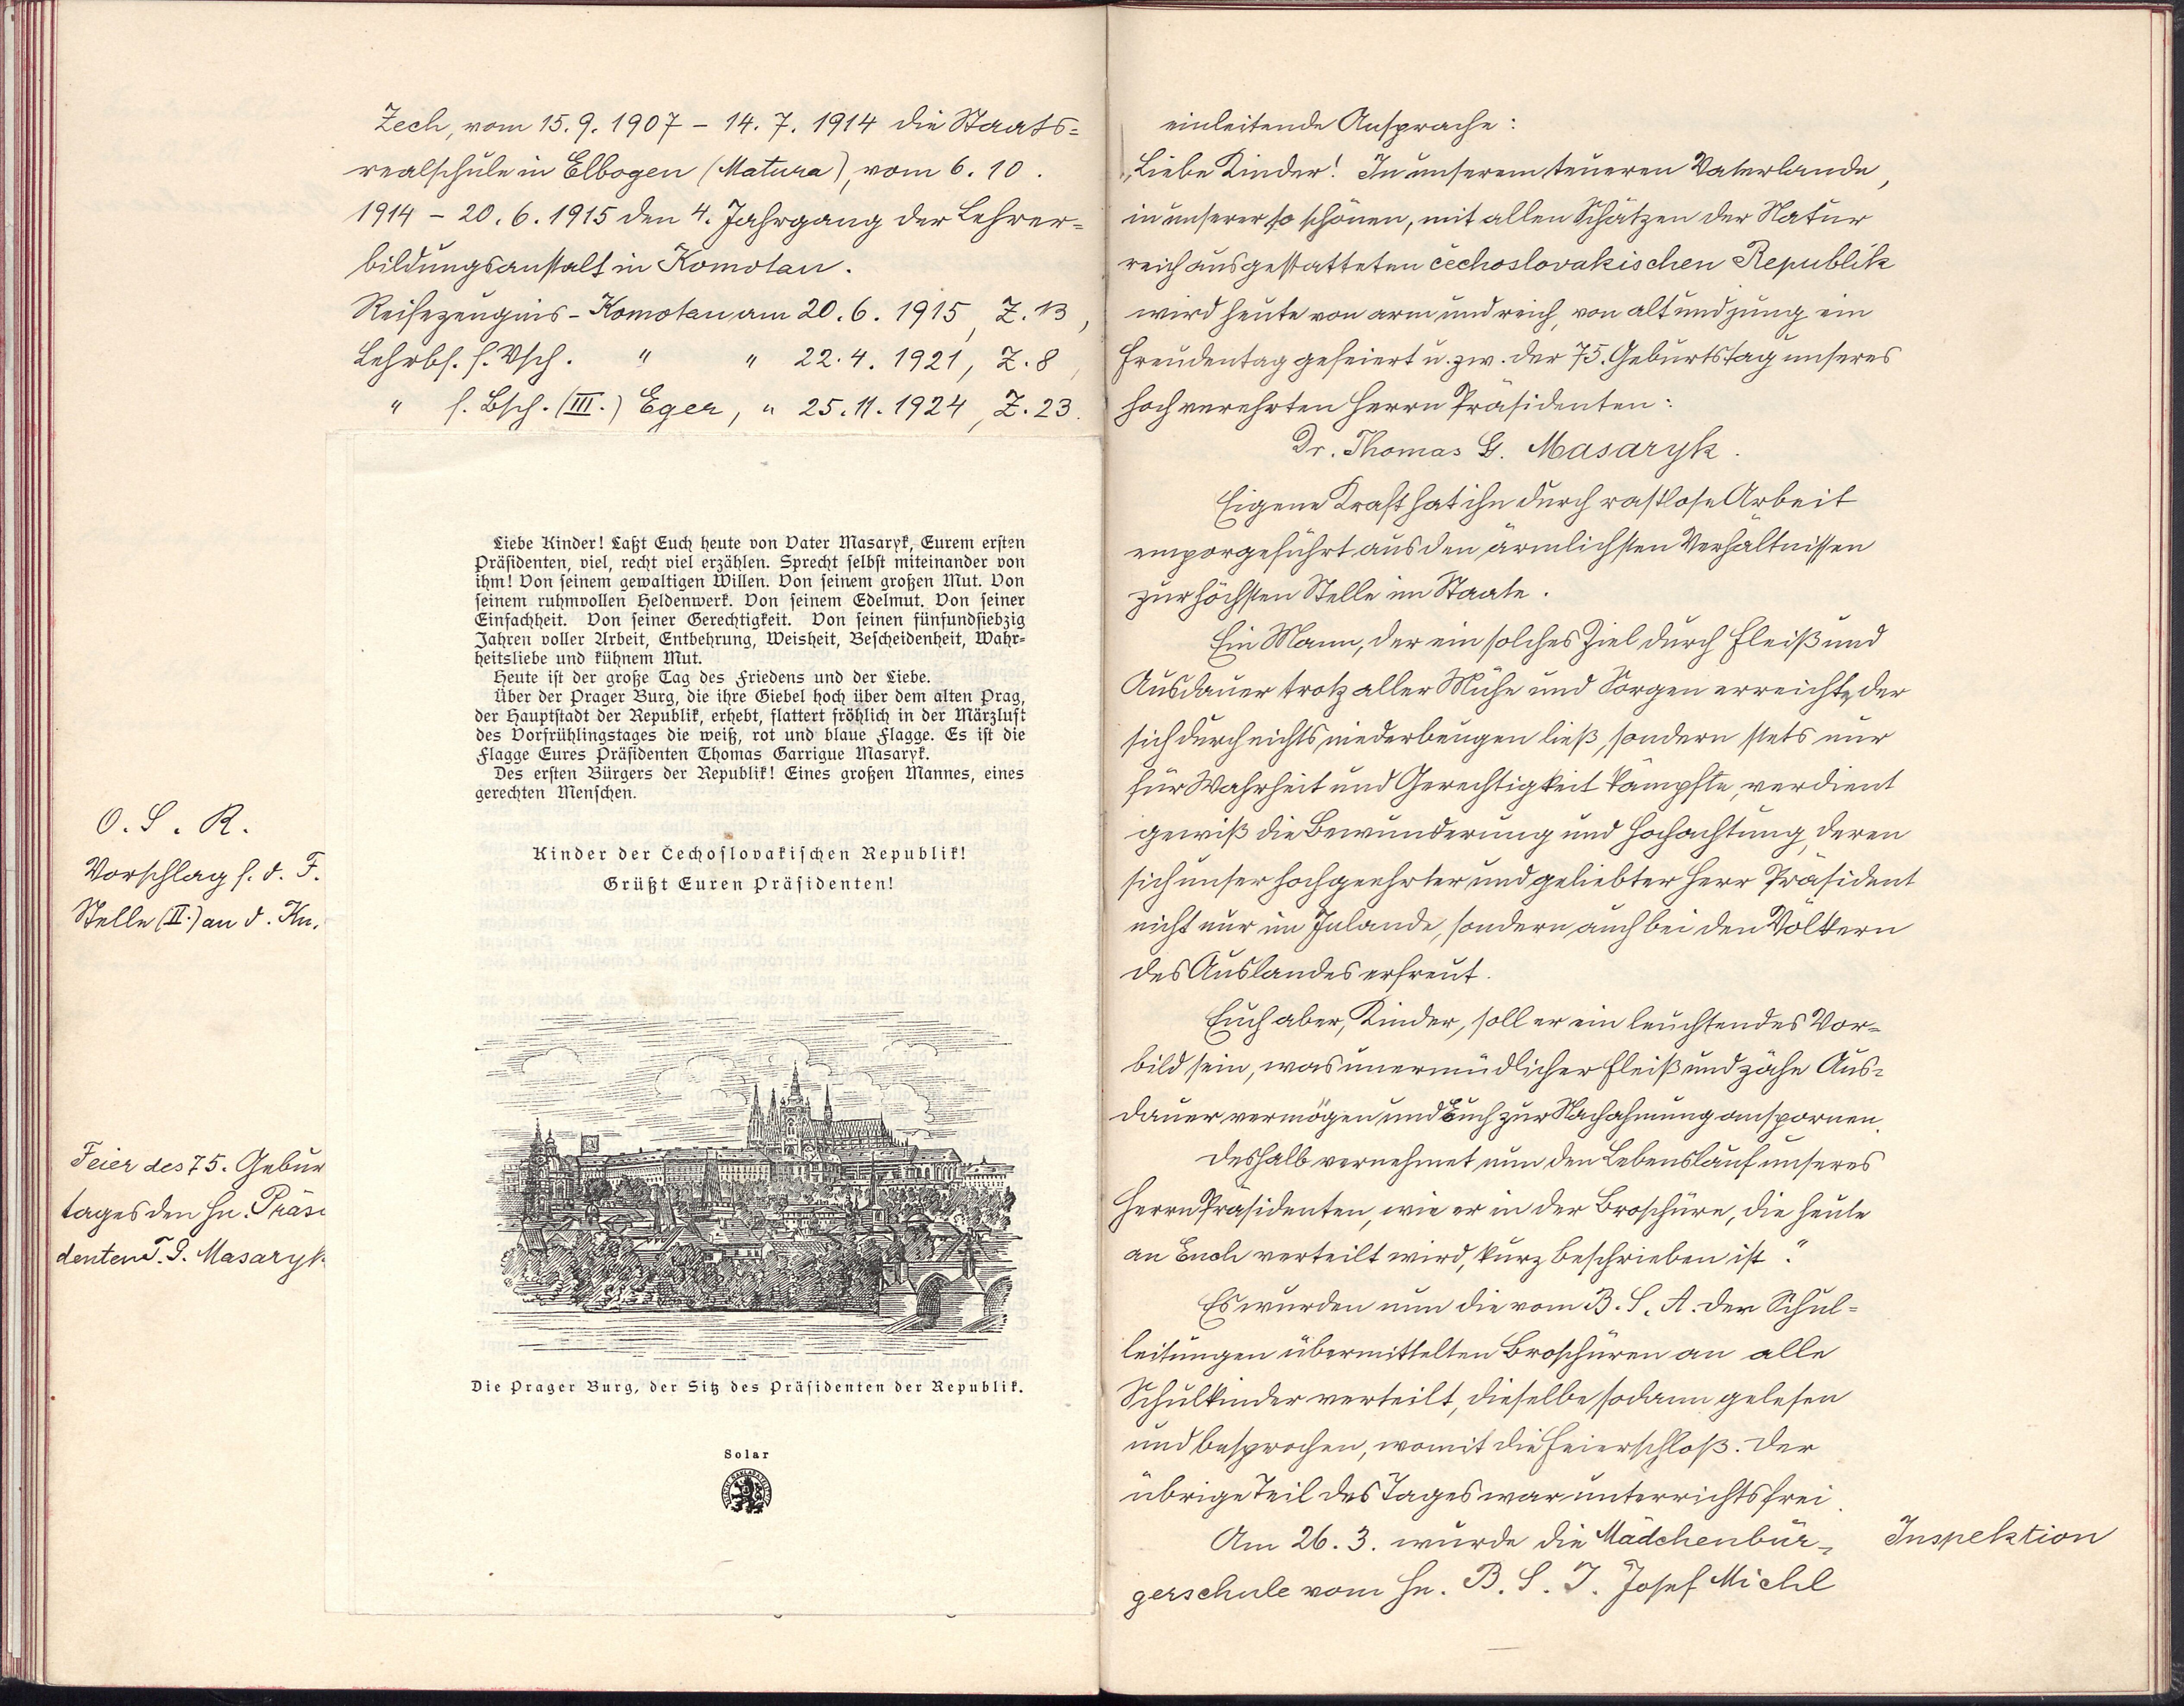 Zech, vom 15.9.1907 – 14.7.1914 die Staats=
realschule in Elbogen (Matura), vom 6.10.
1914 – 20.6.1915 den 4. Jahrgang der Lehrer=
bildungsanstalt in Komotau.
Reifezeugnis – Komotau am 20.6.1915, Z. 13,
Lehrbf. f. Vsch. " " 22.4.1921, Z. 8,
" f. Bsch. (III.) Eger, " 25.11.1924, Z. 23.
Liebe Kinder! Laßt Euch heute von Vater Masaryk, Eurem ersten
Präsidenten, viel, recht viel erzählen. Sprecht selbst miteinander von
ihm! Von seinem gewaltigen Willen. Von seinem großen Mut. Von
seinem ruhmvollen Heldenwerk. Von seinem Edelmut. Von seiner
Einfachheit. Von seiner Gerechtigkeit. Von seinen fünfundsiebzig
Jahren voller Arbeit, Entbehrung, Weisheit, Bescheidenheit, Wahr=
heitsliebe und kühnem Mut.
Heute ist der große Tag des Friedens und der Liebe.
Über der Prager Burg, die ihre Giebel hoch über dem alten Prag,
der Hauptstadt der Republik, erhebt, flattert fröhlich in der Märzluft
des Vorfrühlingstages die weiß, rot und blaue Flagge. Es ist die
Flagge Eures Präsidenten Thomas Garrigue Masaryk.
Des ersten Bürgers der Republik! Eines großen Mannes, eines
gerechten Menschen.
Kinder der Čechoslovakischen Republik!
Grüßt Euren Präsidenten!
Die Prager Burg, der Sitz des Präsidenten der Republik.
Solar
O. S. R.
Vorschlag f. d. F.
Stelle (II.) an d. Kn.
Feier des 75. Gebur
tages den Hn. Präsi
denten T. G. Masaryk
einleitende Ansprache:
„Liebe Kinder! In unserem teueren Vaterlande,
in unserer so schönen, mit allen Schätzen der Natur
reich ausgestatteten čechoslovakischen Republik
wird heute von arm und reich, von alt und jung ein
Freudentag gefeiert u. zw. der 75. Geburtstag unseres
hochverehrten Herrn Präsidenten:
Dr. Thomas G. Masaryk.
Eigene Kraft hat ihn durch rastlose Arbeit
emporgeführt aus den ärmlichsten Verhältnissen
zur höchsten Stelle im Staate.
Ein Mann, der ein solches Ziel durch Fleiß und
Ausdauer trotz aller Mühe und Sorgen erreichte, der
sich durch nichts niederbeugen ließ, sondern stets nur
für Wahrheit und Gerechtigkeit kämpfte, verdient
gewiß die Bewunderung und Hochachtung, deren
sich unser hochgeehrter und geliebter Herr Präsident
nicht nur im Inlande, sondern auch bei den Völkern
des Auslandes erfreut.
Euch aber, Kinder, soll er ein leuchtendes Vor=
bild sein, was unermüdlicher Fleiß und zähe Aus=
dauer vermögen und Euch zur Nachahmung anspornen.
Deshalb vernehmet nun den Lebenslauf unseres
Herrn Präsidenten, wie er in der Broschüre, die heute
an Euch verteilt wird, kurz beschrieben ist."
Es wurden nun die vom B. S. A. der Schul=
leitungen übermittelten Broschüren an alle
Schulkinder verteilt, dieselbe sodann gelesen
und besprochen, womit die Feier schloß. Der
übrige Teil des Tages war unterrichtsfrei.
Am 26.3. wurde die Mädchenbür=
gerschule vom Hn. B. S. I. Josef Michl
Inspektion